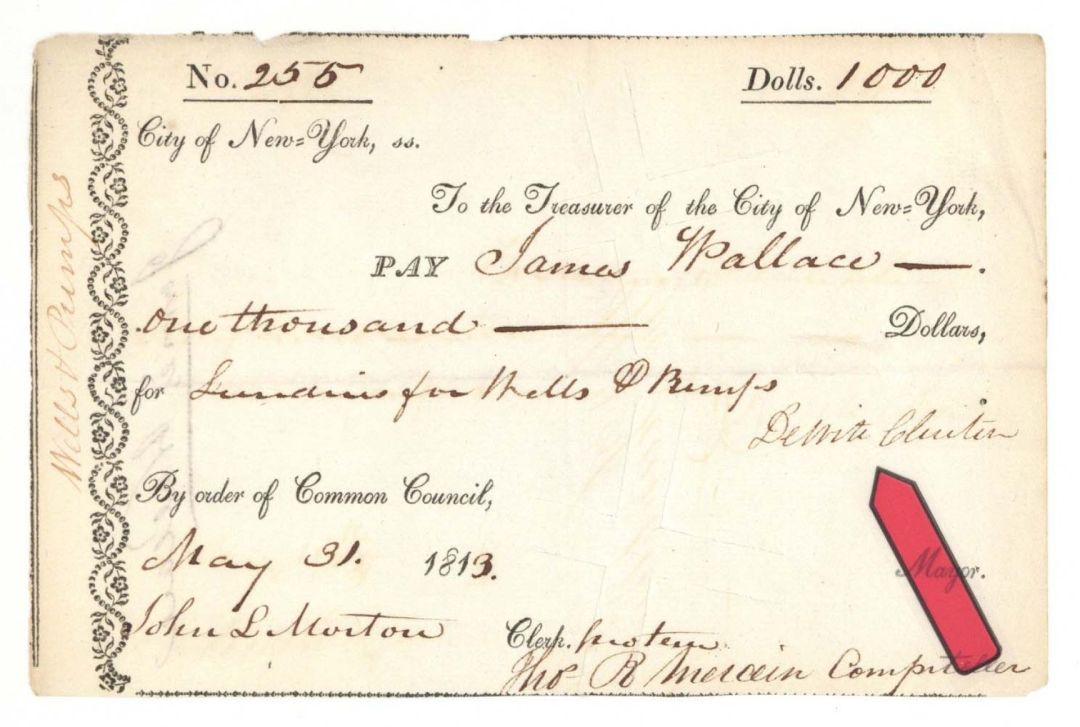 No. 255 Dolls. 1000
City of New=York, ss.
To the Treasurer of the City of New=York,
PAY James Wallace — .
one thousand — Dollars,
for Sundries for Wells & Pumps
DeWitt Clinton
By order of Common Council,
Mayor.
May 31. 1813.
John L Morton Clerk. protem
Tho. R Mercein Comptroller
Wells & Pumps